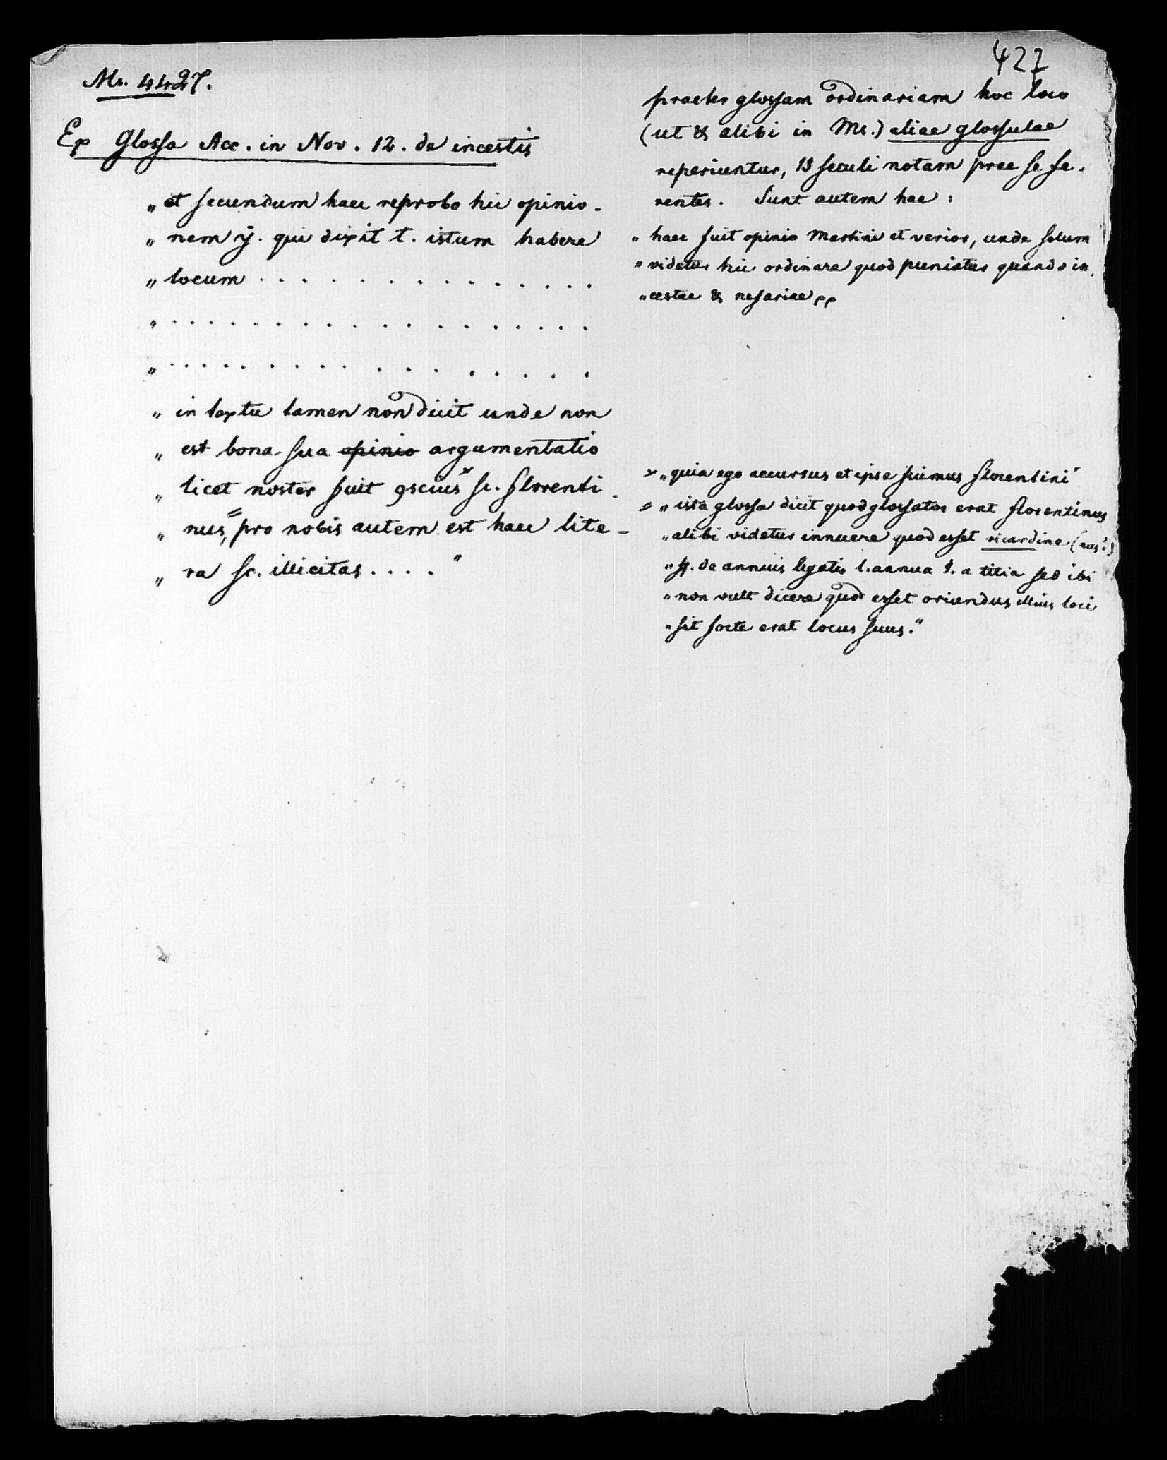 427
Ms. 4427.
Ex Glossa Acc. in Nov. 12. de incestis
„ et secundum haec reprobo hic opinio-
„ nem y. qui dixit t. istum habere
„ locum . . . . . . . . . . . . . . .
„ . . . . . . . . . . . . . . . . . .
„ . . . . . . . . . . . . . . . . . .
„ in textu tamen non dicit unde non
„ est bona sua opinio argumentatio
„ licet noster fuit ꝯscius × sc. florenti-
„ nus, = pro nobis autem est haec lite-
„ ra sc. illicitas . . . . "
praeter glossam ordinariam hoc loco
(ut & alibi in Ms.) aliae glossulae
reperiuntur, 13 seculi notam prae se fe-
rentes. Sunt autem hae:
„ haec fuit opinio Martini et verior, unde solum
„ videtur hic ordinare quod puniatur quando in
„ cestae & nefariae
× „ quia ego accursus et ipse fuimus florentini"
= „ ista glossa dicit quod glossator erat florentinus
„ alibi videtur innuere quod esset ricardine (nus?)
„ ff. de annuis legatis l. annua §. a titia sed ibi
„ non vult dicere quod esset oriundus illius loci
„ sit forte erat locus suus."